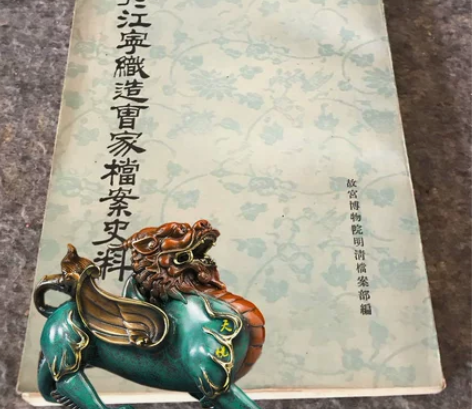 江寧織造曹家檔案史料
故宮博物院明清檔案部編